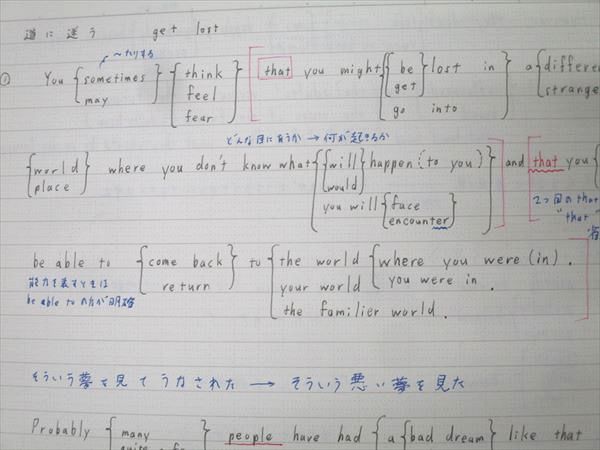 道に迷う get lost
～たりする
① You { sometimes may } { think feel fear } [ that you might { be get } lost in a { differe
go into strange
どんな目に会うか → 何が起きるか
{ world place } where you don't know what { { will would } happen (to you) } ] and [ that you
you will { face encounter }
2つ目のthat
"that"
be able to { come back return } to { the world { where you were (in).
your world you were in.
the familier world.
能力を表すときは
be able to の方が明確
そういう夢を見てうなされた → そういう悪い夢を見た
Probably { many } people have had { a { bad dream } like that